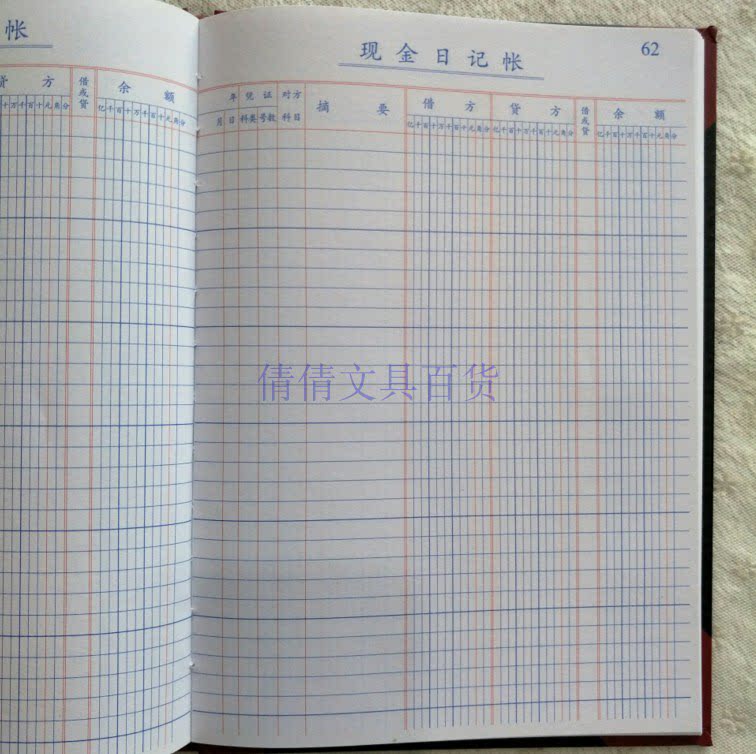 帐
贷 方 借或贷 余 额
十万千百十元角分 亿千百十万千百十元角分
现金日记帐 62
年 凭证 对方 摘 要 借 方 贷 方 借或贷 余 额
月 日 科类 号数 科目 亿千百十万千百十元角分 亿千百十万千百十元角分 亿千百十万千百十元角分
倩倩文具百货